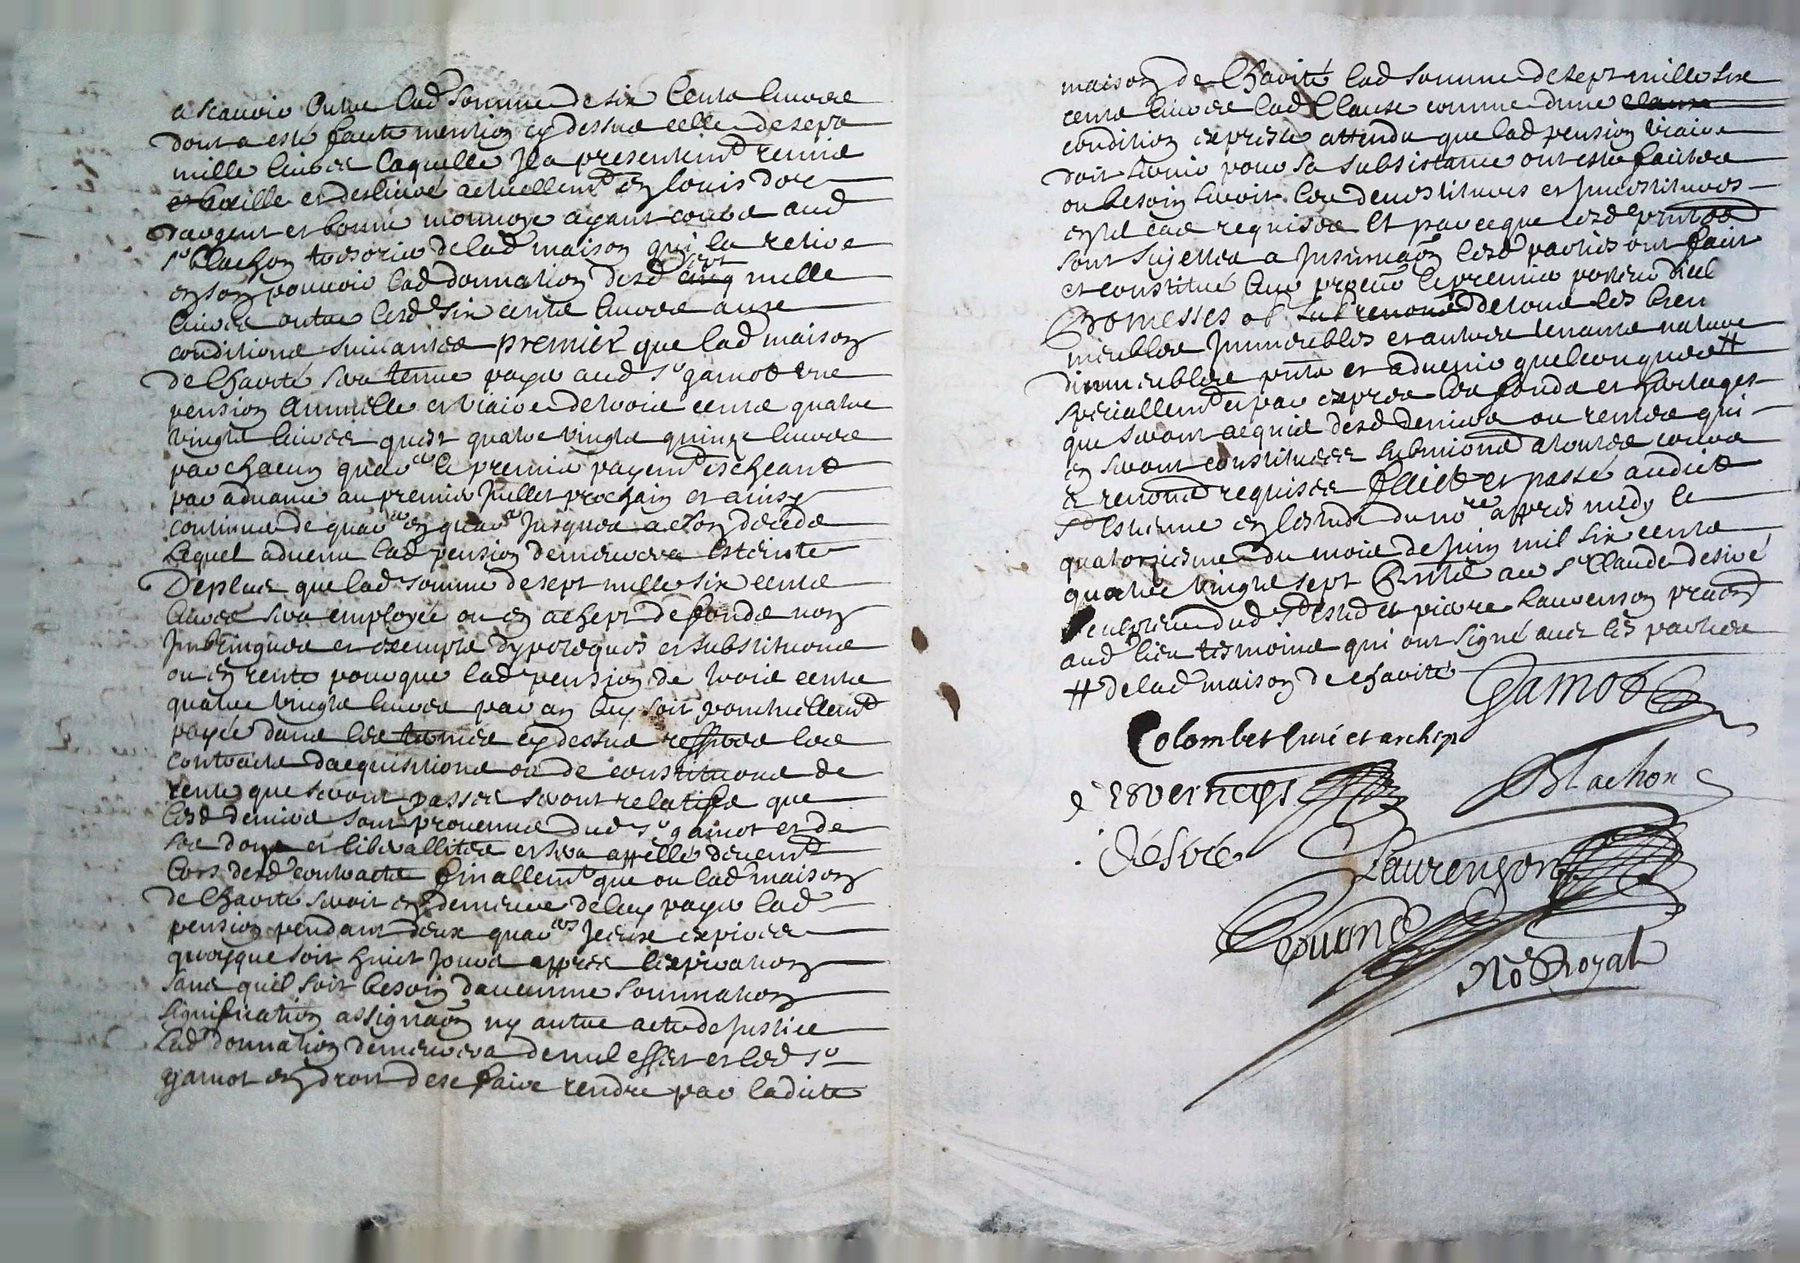 a scavoir outre lad somme de six cents livres
dont a esté faute mention cy dessus celle de sept
mille livres laquelle Il a presentemt remis
et baillé et deslivré actuellemt en louis dor
d'argent et bonne monnoye ayant cours aud
sr blachon tresorier de lad maison qui la retire
en son pouvoir lad donnation desd cinq sept mille
livres outre lesd six cents livres aux
conditions suivantes premier que lad maison
de Charité sera tenue payer aud sr gamot une
pension annuelle et viaire de trois cents quatre
vingts livres quest quatre vingts quinze livres
par chacun quarer le premier payemt escheant
par advance au premier Juillet prochain et ainsy
continue de quarer en quarer Jusques a son decede
lequel advenu lad pension demeurera esteinte
De plus que lad somme de sept mille six cents
livres sera employée ou en achept de fonds non
Imbringués et exempts d'ypoteques et substitutions
ou en rente pour que lad pension de trois cents
quatre vingts livres par an luy soit ponctuellemt
payée dans les termes cy dessus les
contracts dacquisitions ou de constitutions de
rente que seront passés seront relatifs que
lesd deniers sont provenus dud sr gamot et de
ses dons et liberallités et sera appellé
lors desd contracts finallemt que ou lad maison
de Charité seroit en demeure de luy payer lad
pension pendant deux quarers Iceux expirés
quoyque soit huit jours appres lexpiration
sans quil soit besoin daucune sommation
signification assignaon ny autre acte de Justice
Lad donnation demeurera de nul effect et led sr
gamot en droit de se faire rendre par ladite
maison de Charité lad somme de sept mille six
cents livres lad Clause comme dune clause
condition expresse attendu que lad pension viaire
doit servir pour sa subsistance ont esté faites
ou besoin seroit les devestitures et Investitures
en tel cas requises Et parceque lesd
sont sujettes a Insinuaon lesd parties ont fait
et constitué leur procur le premier porteur dicel
Promesses ob sub renond de tous les bien
meubles Immeubles et autres tenants nature
dimmeubles pnts et advenir quelconques #
speciallemt et par exprés les fonds et heritages
que seront acquis desd deniers ou rentes qui
en seront constituées submiond a toutes cours
& renond requises faict et passé audict
st Estienne en lestude du nore appres midy le
quatorzieme du mois de Juin mil six cents
quatre vingts sept Pnts au sr Claude desiré
sculpteur dud st Est et pierre Laurenson praticn
aud lieu tesmoins qui ont signé avec les parties
# de lad maison de charité
Gamot
Colombet curé et archip
Blachon
Désiré
Laurenson
No Royal